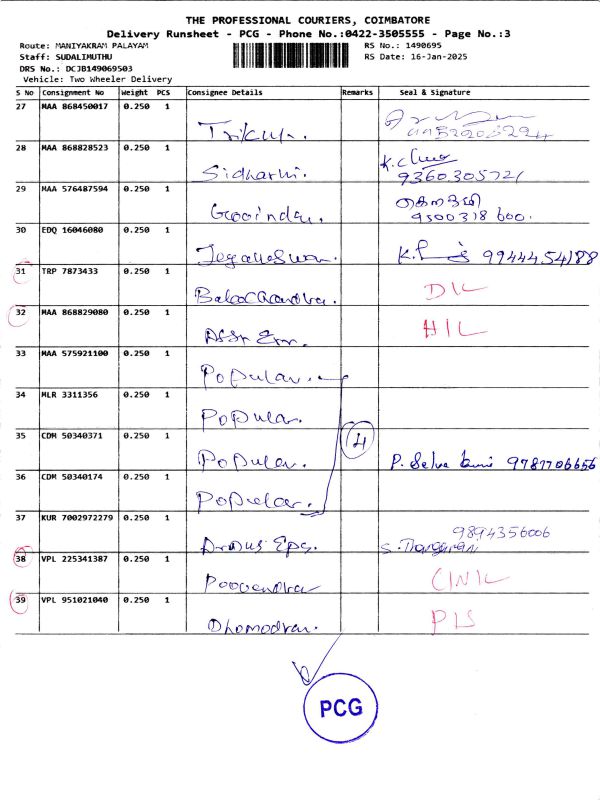 THE PROFESSIONAL COURIERS, COIMBATORE
Delivery Runsheet - PCG - Phone No.:0422-3505555 - Page No.:3
Route: MANIYAKRAM PALAYAM
RS No.: 1490695
Staff: SUDALIMUTHU
RS Date: 16-Jan-2025
DRS No.: DCJB149069503
Vehicle: Two Wheeler Delivery
S No Consignment No Weight PCS Consignee Details Remarks Seal & Signature
27 MAA 868450017 0.250 1
28 MAA 868828523 0.250 1
Sidharhi. 9360305721
29 MAA 576487594 0.250 1
Govindan. 9500318 600.
30 EDQ 16046080 0.250 1
Jegatheswar. 9944454188
31 TRP 7873433 0.250 1
BalaChandra. D/L
32 MAA 868829080 0.250 1
H/L
33 MAA 575921100 0.250 1
Popular.
34 MLR 3311356 0.250 1
Popular.
35 CDM 50340371 0.250 1 4
Popular. P. Selva 9787706656
36 CDM 50340174 0.250 1
Popular.
37 KUR 7002972279 0.250 1
9894356006
38 VPL 225341387 0.250 1
Poovendra
39 VPL 951021040 0.250 1
Dhomodran.
PCG